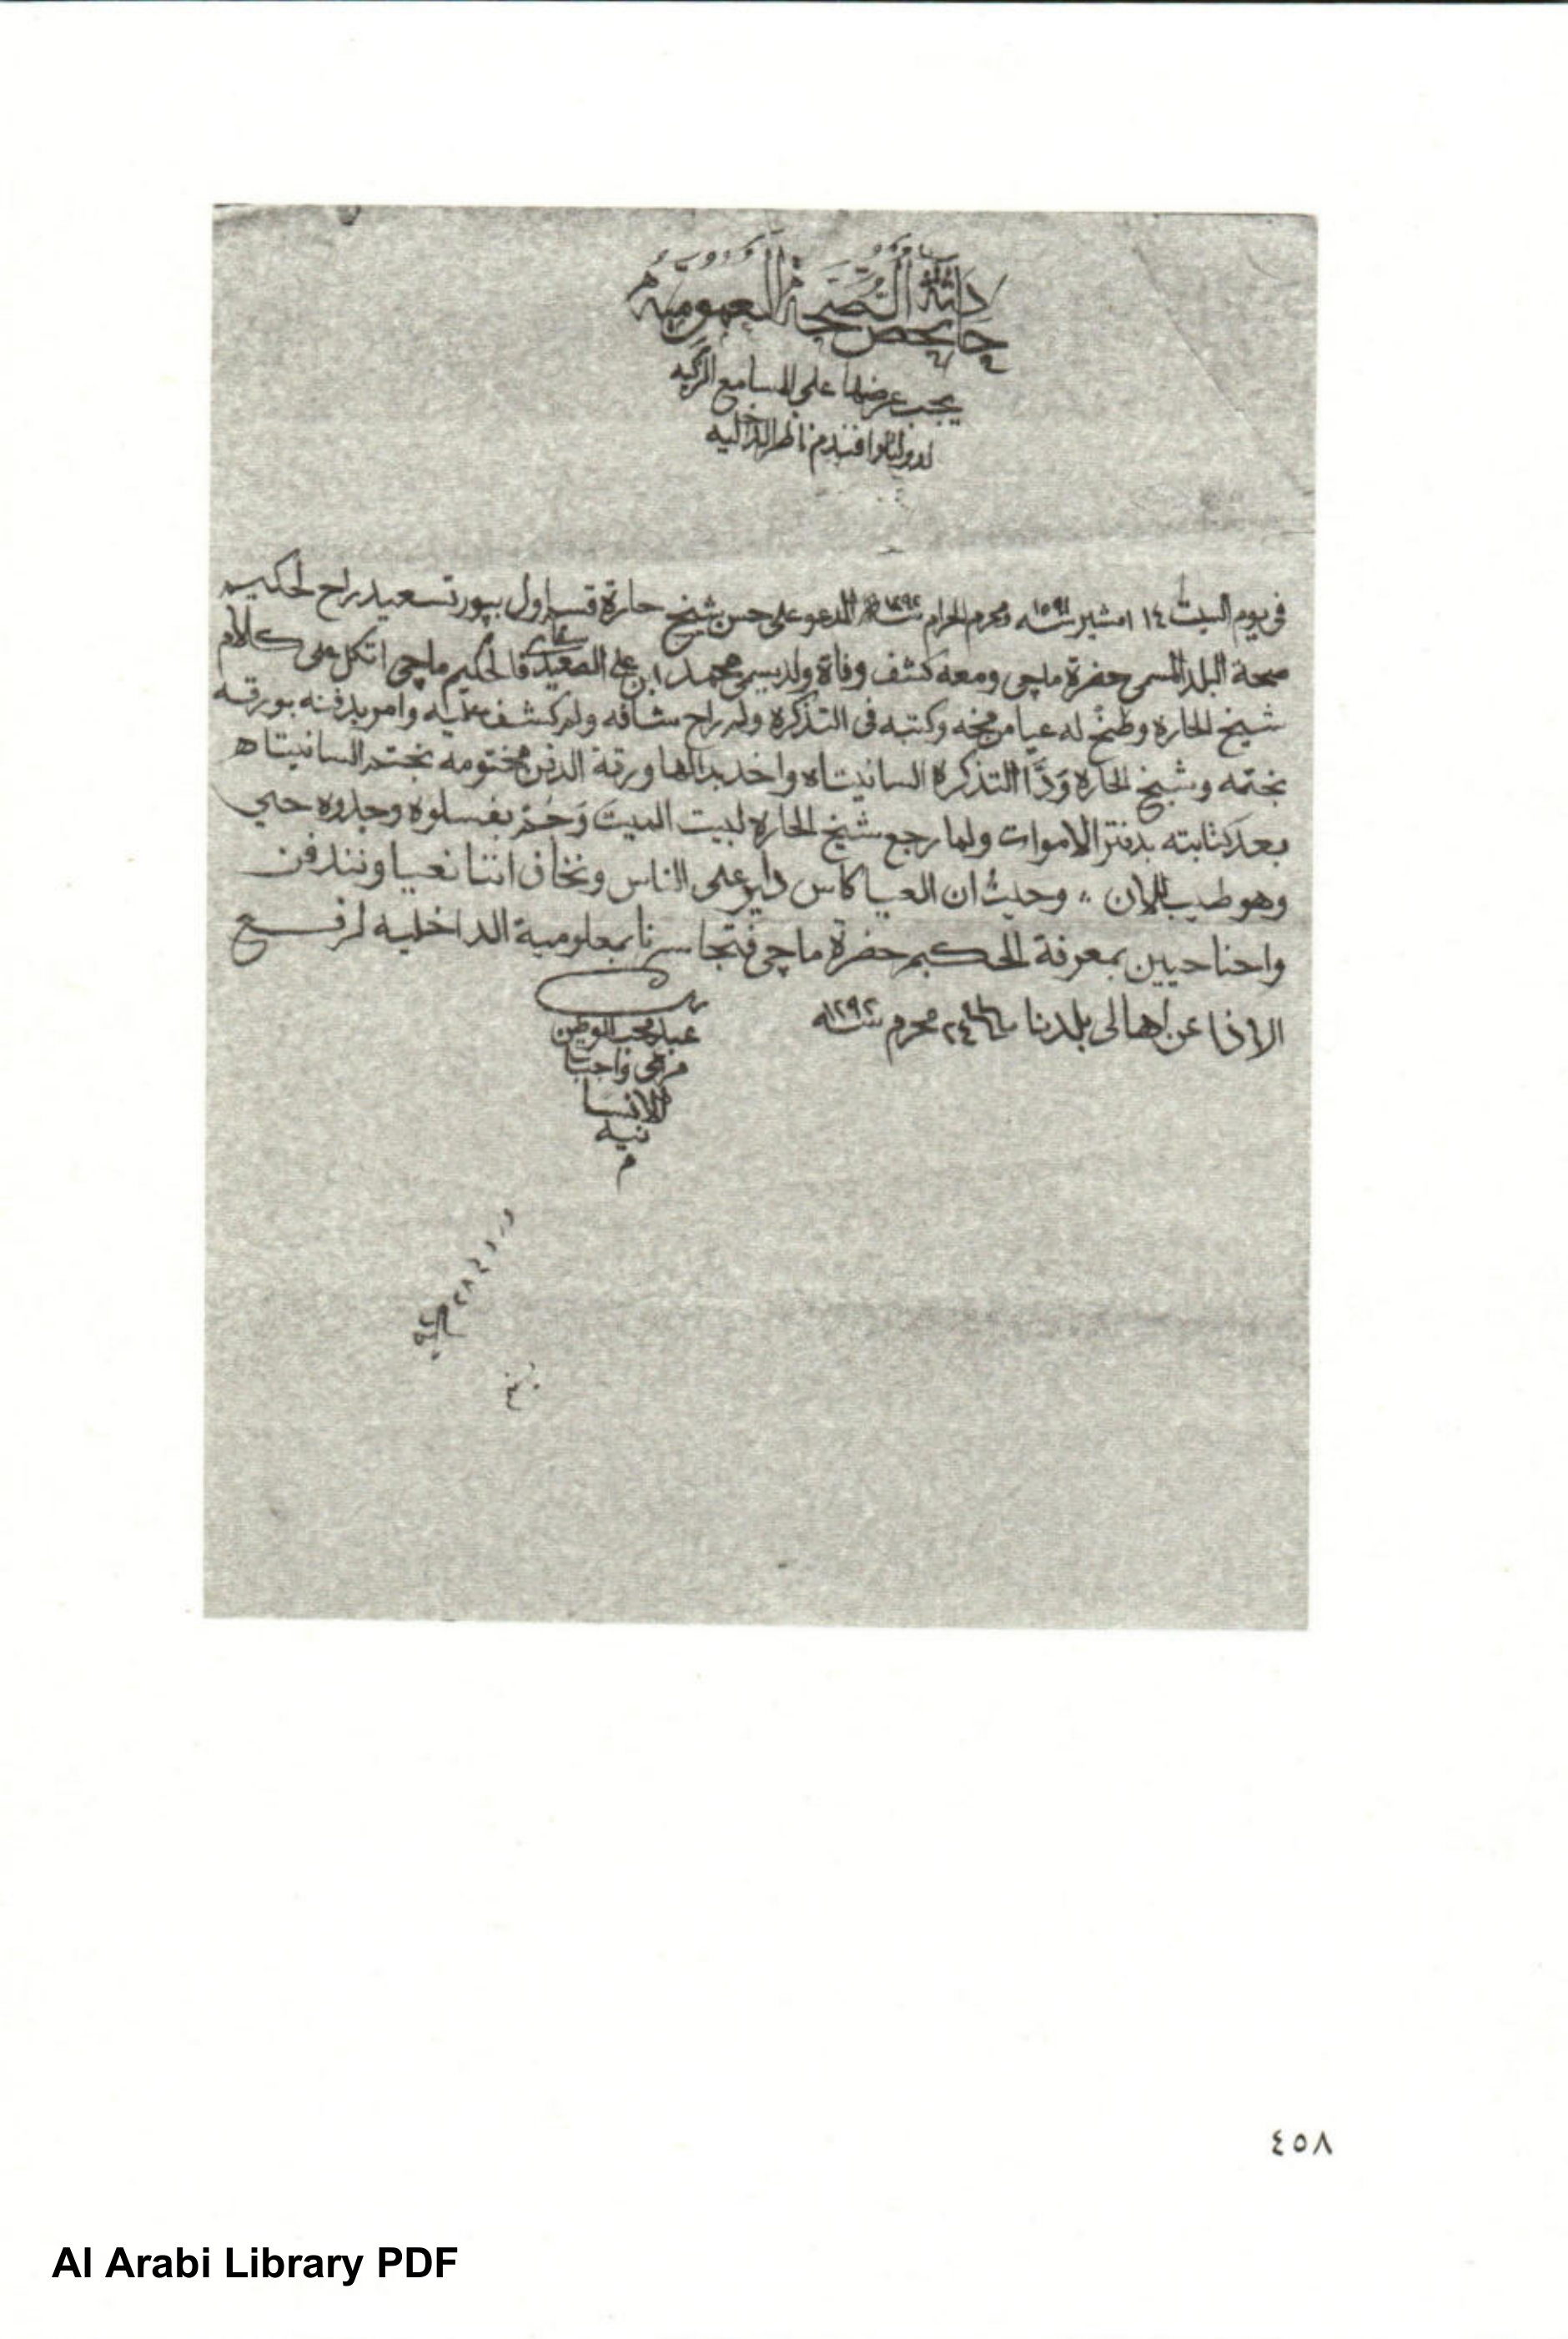 حادثة تخص الصحة العمومية
يجب عرضها على المسامع الزكيه
لدولتلوا افندم ناظر الداخليه
في يوم السبت ١٤ امشير سنه ١٥٩١ محرم الحرام سنة ١٢٩٢ المدعو على حسن شيخ حارة قسم اول ببورتسعيد راح لحكيم
صحة البلد المسمى حضرة ماچى ومعه كشف وفاة ولد يسمى محمد ابن على الصعيدى فالحكيم ماچى اتكل على كلام
شيخ الحاره وطلع له عيا من مخه وكتبه فى التذكرة ولم راح شافه ولم كشف عليه وامر بدفنه بورقه
بختمه وشيخ الحاره ودّا التذكرة السانيتاه واخد بدالها ورقة الدفن مختومه بختم السانيتاه
بعد كتابته بدفتر الاموات ولما رجع شيخ الحاره لبيت الميت بغسلوه وجدوه حي
وهو طيب للان ،، وحيث ان العيا كاس داير على الناس ونخاف اننا نعيا ونندفن
واحنا حيين بمعرفة الحكيم حضرة ماچى فتجاسرنا بمعلومية الداخليه لرفع
الاذا عن اهالى بلدنا ٢٤ محرم سنه ١٢٩٢
عبد محب الوطن
واجبا
للانسا
نيه
م
٤٥٨
Al Arabi Library PDF